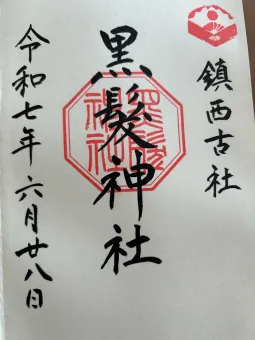 鎮西古社
黒髪神社
令和七年六月廿八日